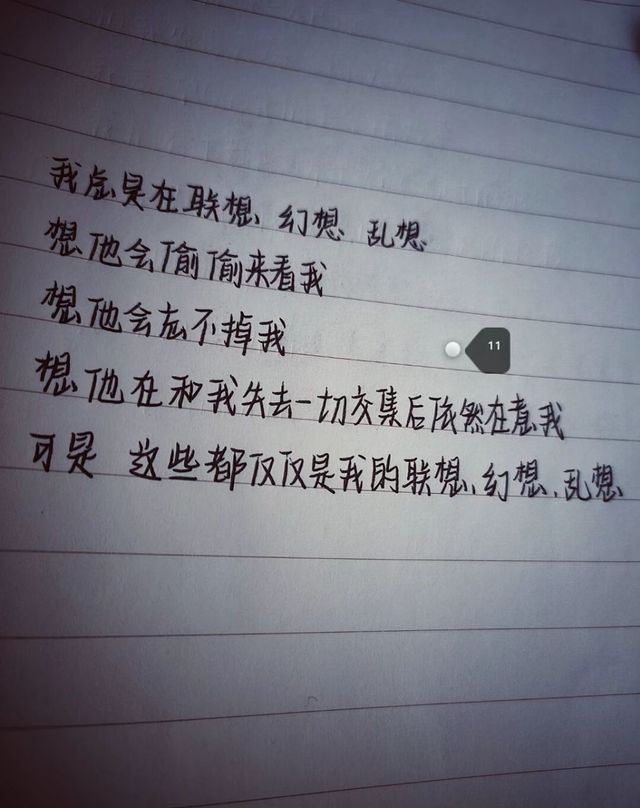 我总是在联想、幻想、乱想
想他会偷偷来看我
想他会忘不掉我
11
想他在和我失去一切交集后依然在意我
可是 这些都仅仅是我的联想、幻想、乱想